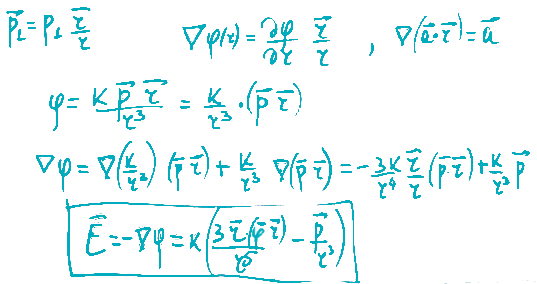 p⃗₁ = p₁ r⃗/r   ∇φ(r) = ∂φ/∂r r⃗/r , ∇(a⃗·r⃗) = a⃗
φ = K p⃗ r⃗/r³ = K/r³ · (p⃗ r⃗)
∇φ = ∇(K/r³)(p⃗ r⃗) + K/r³ ∇(p⃗ r⃗) = -3K/r⁴ r⃗/r (p⃗ r⃗) + K/r³ p⃗
E⃗ = -∇φ = K(3r⃗(p⃗ r⃗)/r⁵ - p⃗/r³)